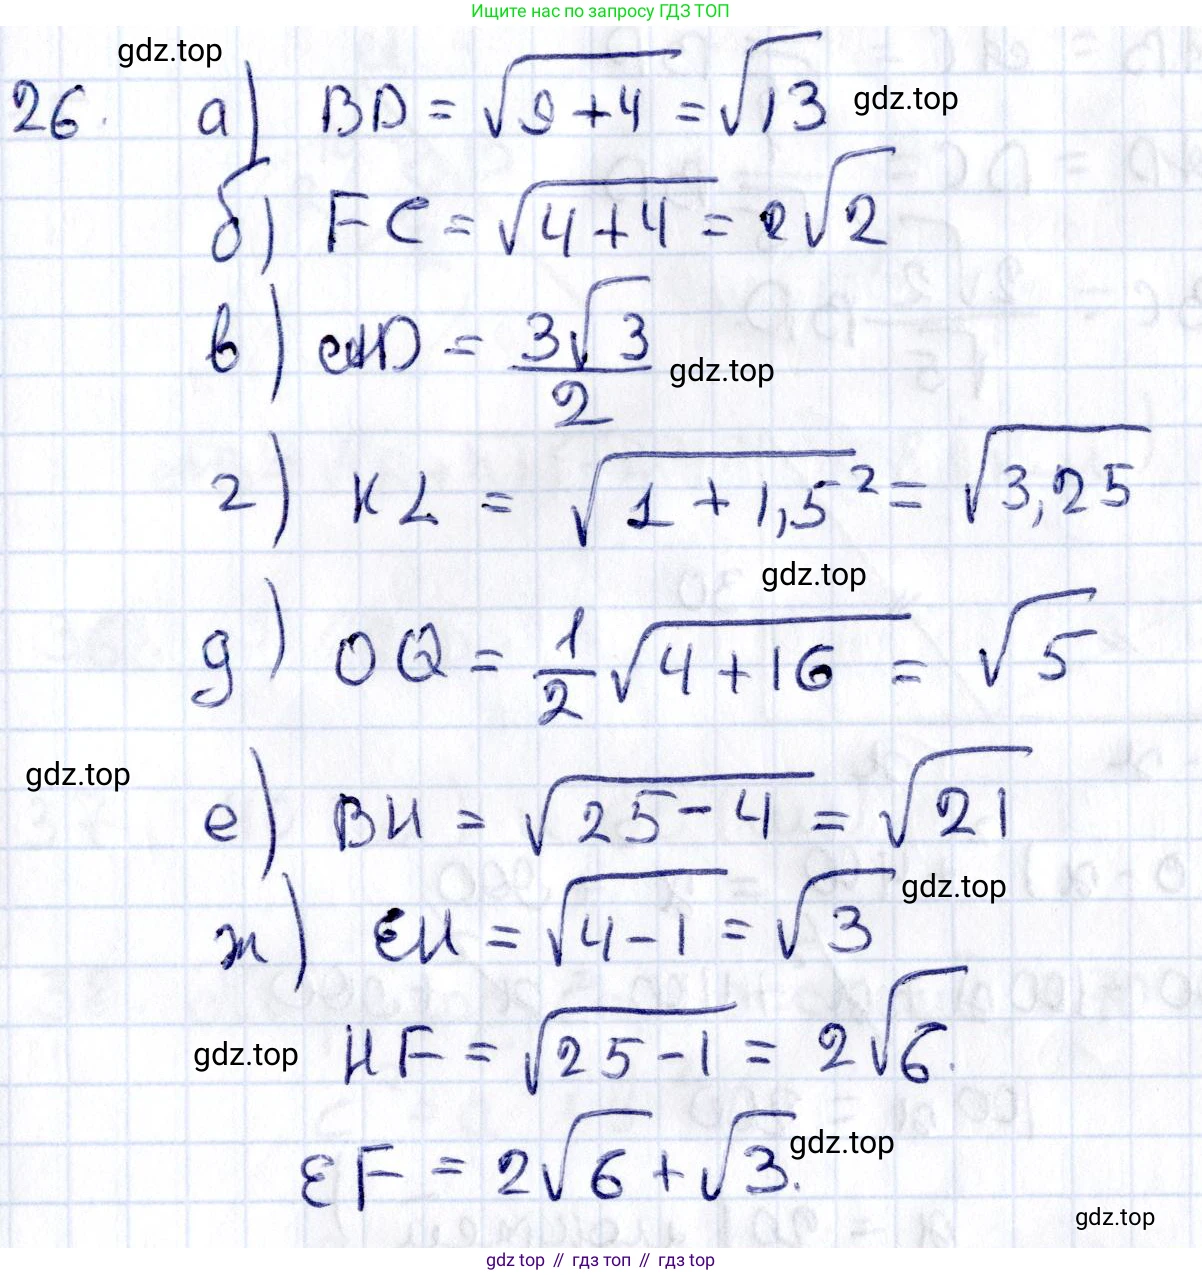 Ищите нас по запросу ГДЗ ТОП
gdz.top
26. а) BD = √(9+4) = √13 gdz.top
б) FC = √(4+4) = 2√2
в) AD = 3√3/2 gdz.top
г) KL = √(1+1,5²) = √3,25
gdz.top
д) OQ = 1/2 √(4+16) = √5
gdz.top
е) BH = √(25-4) = √21
gdz.top
ж) EH = √(4-1) = √3
gdz.top HF = √(25-1) = 2√6.
EF = 2√6 + √3. gdz.top
gdz.top
gdz top // гдз топ // gdz top